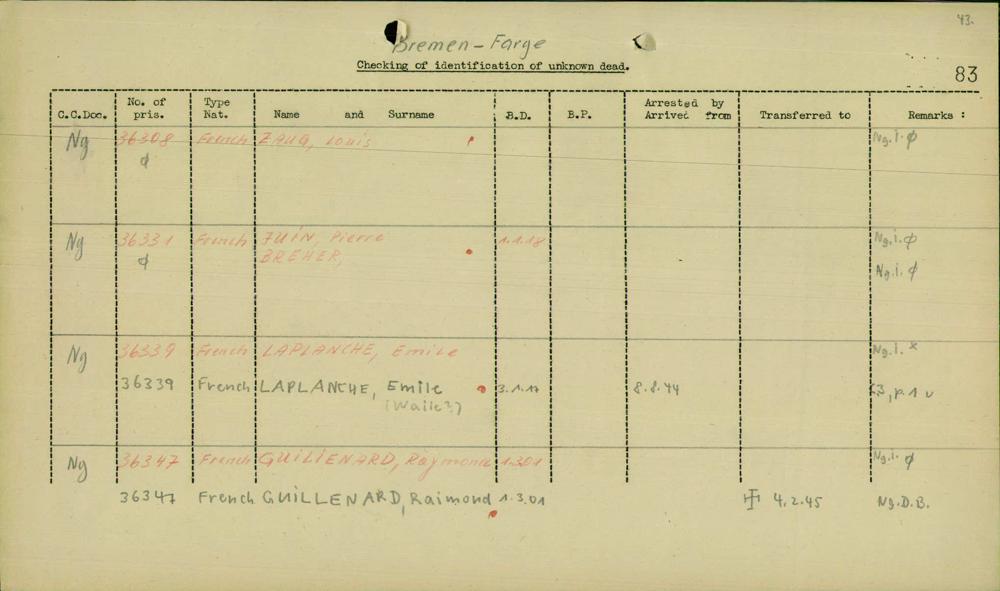 43.
Bremen-Farge
Checking of identification of unknown dead.
83
C.C.Doc. No. of pris. Type Nat. Name and Surname B.D. B.P. Arrested by Arrived from Transferred to Remarks :
Ng 36308 French ZAUG, Louis Ng.i. ϕ
ϕ
Ng 36331 French JUIN, Pierre 1.1.18 Ng.i. ϕ
ϕ BREHER, Ng.i. ϕ
Ng 36339 French LAPLANCHE, Emile Ng.i. x
36339 French LAPLANCHE, Emile 3.1.17 8.8.44 p.1
(Waile?)
Ng 36347 French GUILIENARD, Raymond 1.301 Ng.i. ϕ
36347 French GUILLENARD, Raimond 1.3.01 4.2.45 Ng.D.B.